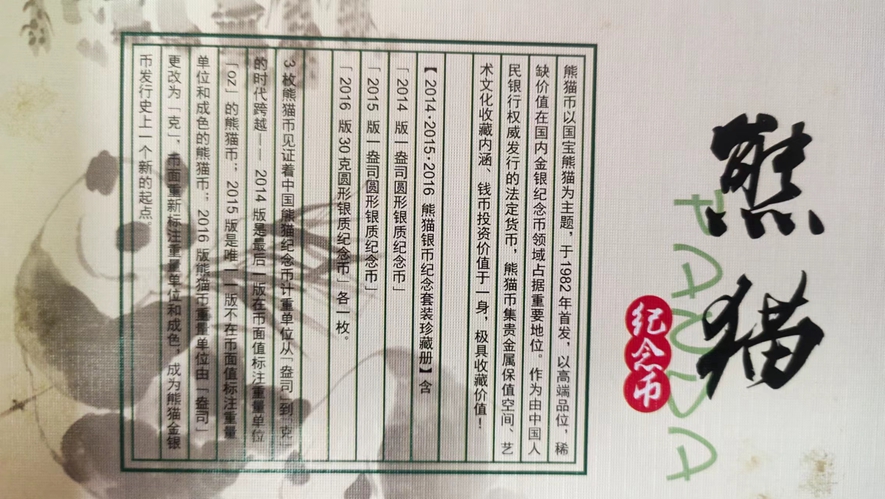 熊猫
PANDA
纪念币
熊猫币以国宝熊猫为主题，于1982年首发，以高端品位，稀
缺价值在国内金银纪念币领域占据重要地位。作为由中国人
民银行权威发行的法定货币，熊猫币集贵金属保值空间、艺
术文化收藏内涵、钱币投资价值于一身，极具收藏价值！
【2014·2015·2016 熊猫银币纪念套装珍藏册】含
「2014 版一盎司圆形银质纪念币」
「2015 版一盎司圆形银质纪念币」
「2016 版 30 克圆形银质纪念币」各一枚。
3 枚熊猫币见证着中国熊猫纪念币计重单位从“盎司”到“克”
的时代跨越—— 2014 版是最后一版在币面值标注重量单位
「oz」的熊猫币；2015 版是唯一一版不在币面值标注重量
单位和成色的熊猫币；2016 版熊猫币重量单位由「盎司」
更改为「克」，币面重新标注重量单位和成色，成为熊猫金银
币发行史上一个新的起点。